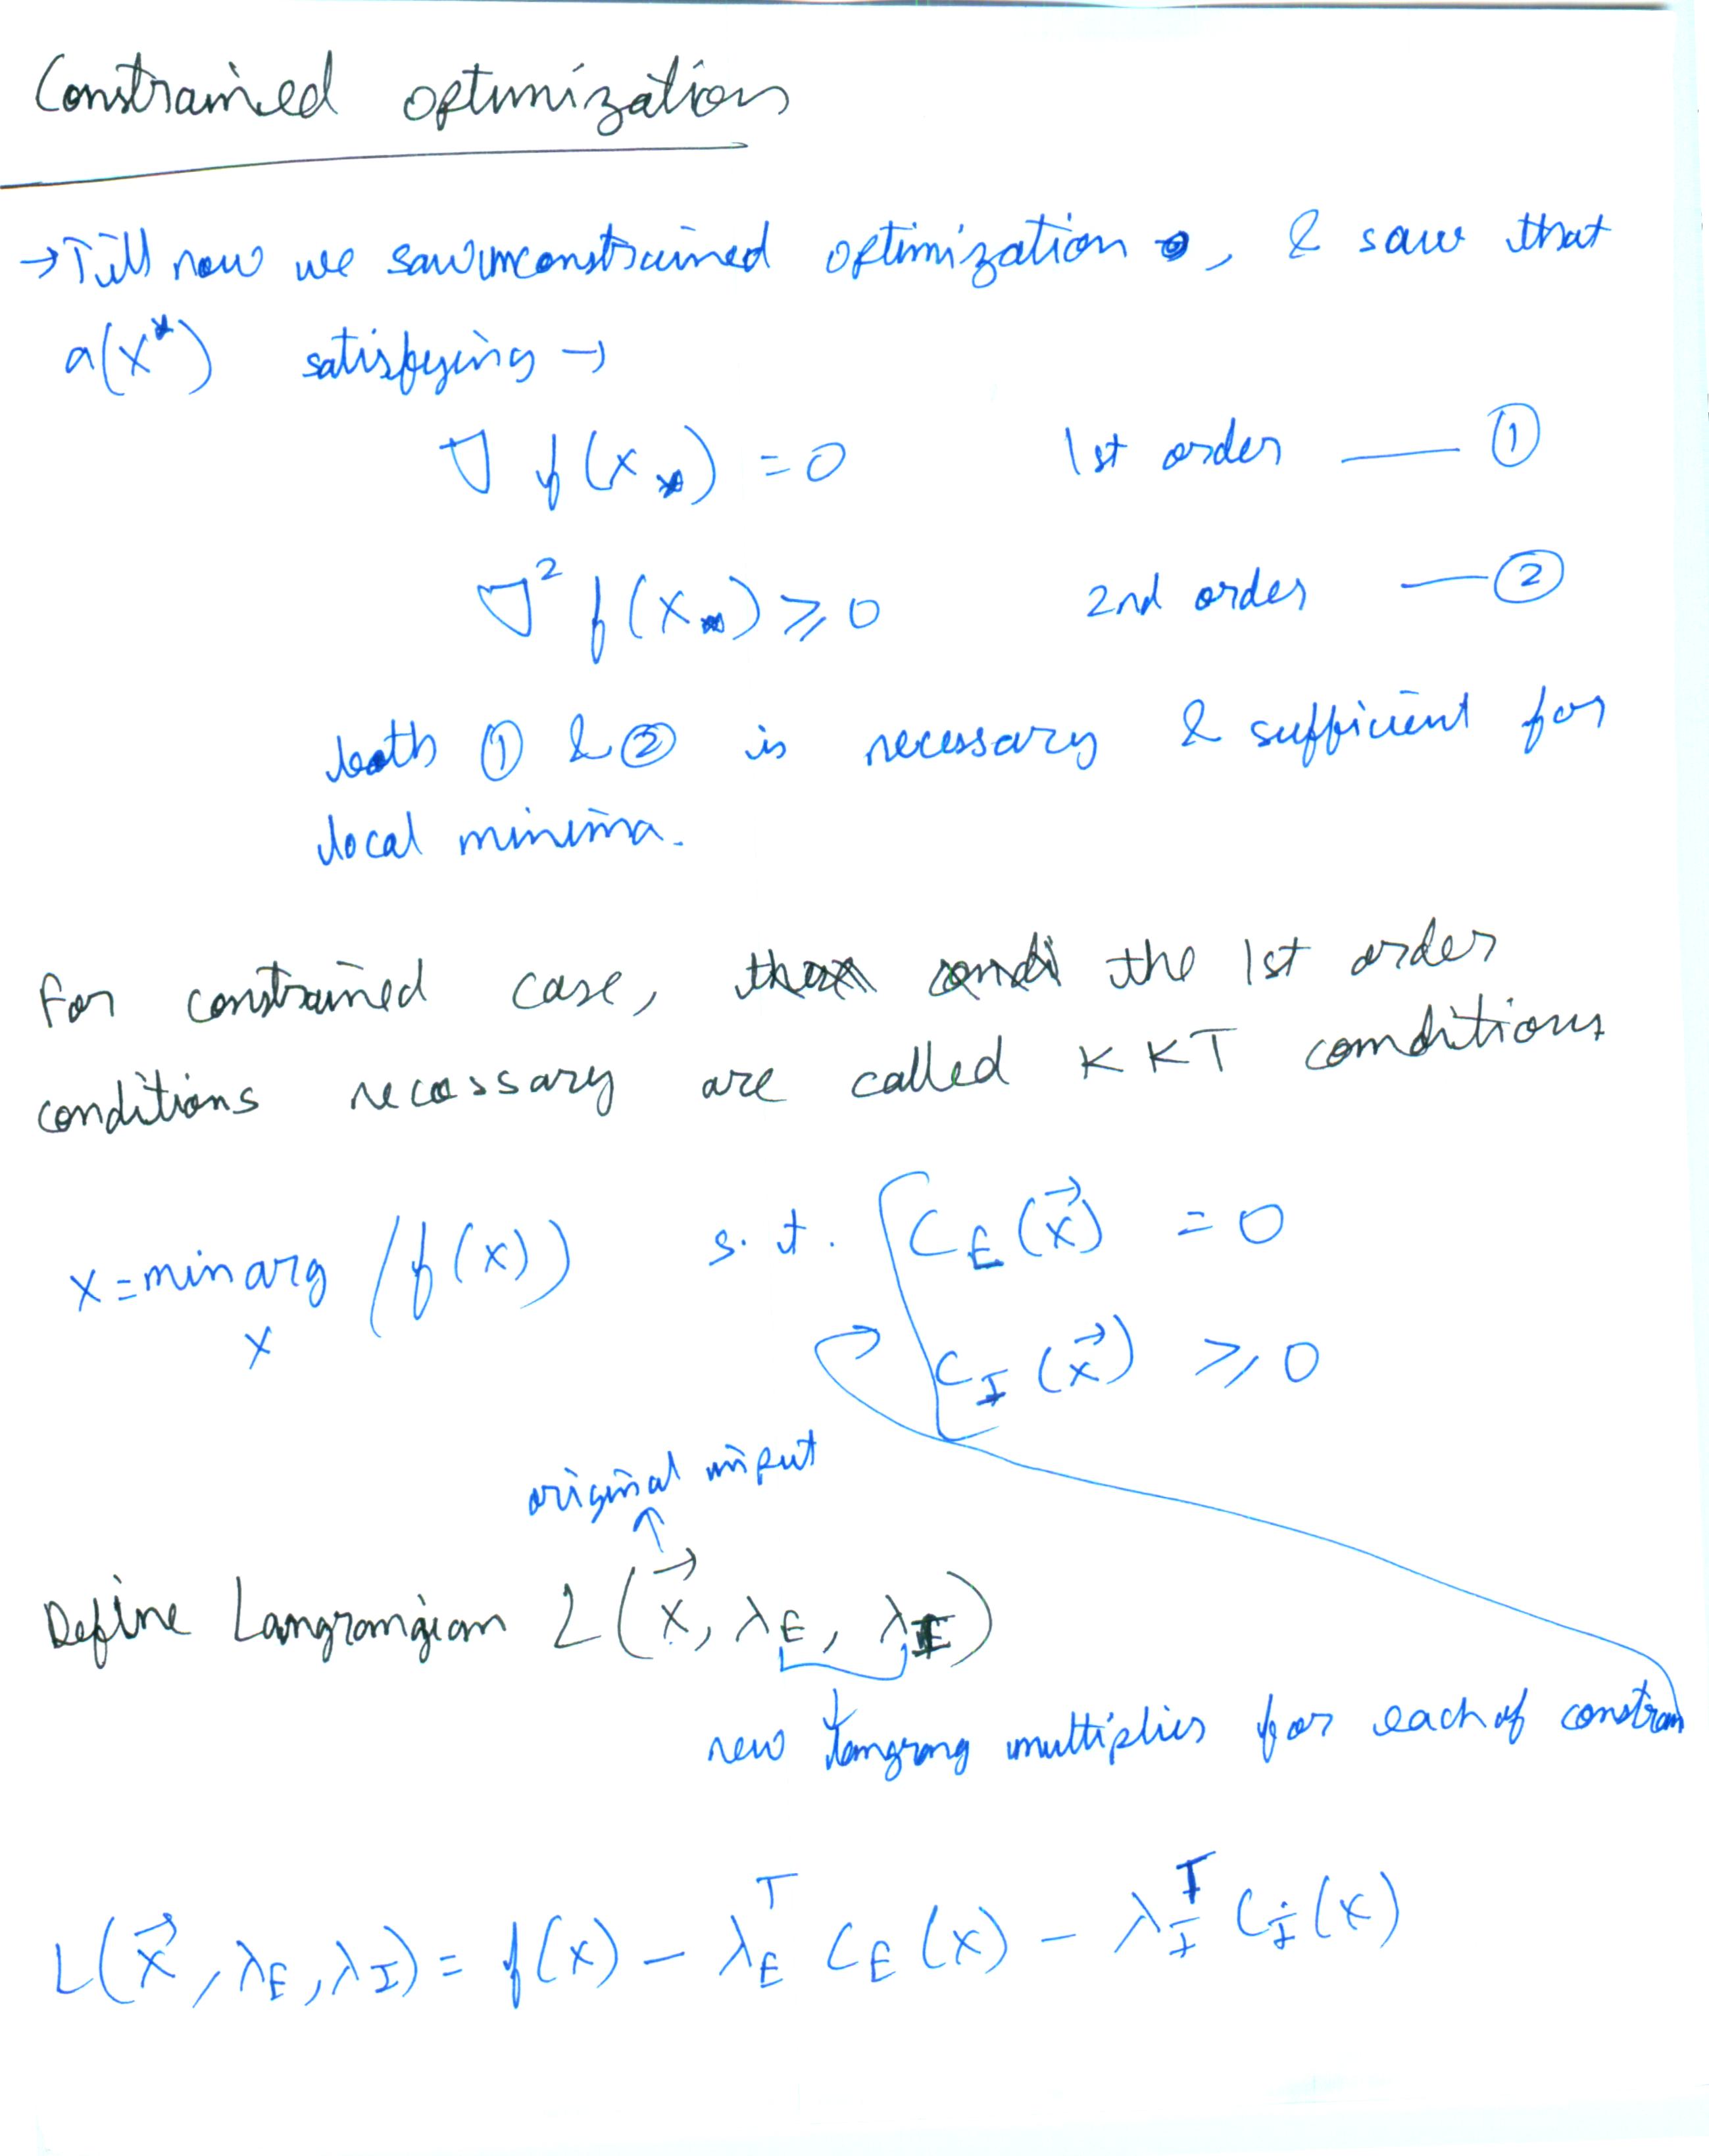 Constrained optimization
→ Till now we saw unconstrained optimization, & saw that
a(x*) satisfying →
∇ f(x*) = 0 1st order — ①
∇² f(x*) ≥ 0 2nd order — ②
both ① & ② is necessary & sufficient for
local minima.
For constrained case, the 1st order
conditions necessary are called KKT conditions
x = min arg (f(x)) s.t. C_E(x⃗) = 0
x
C_I(x⃗) ≥ 0
original input
↑
Define Langrangian L(x⃗, λ_E, λ_I)
new langrang multiplies for each of constrain
L(x⃗, λ_E, λ_I) = f(x) - λ_E^T C_E(x) - λ_I^T C_I(x)